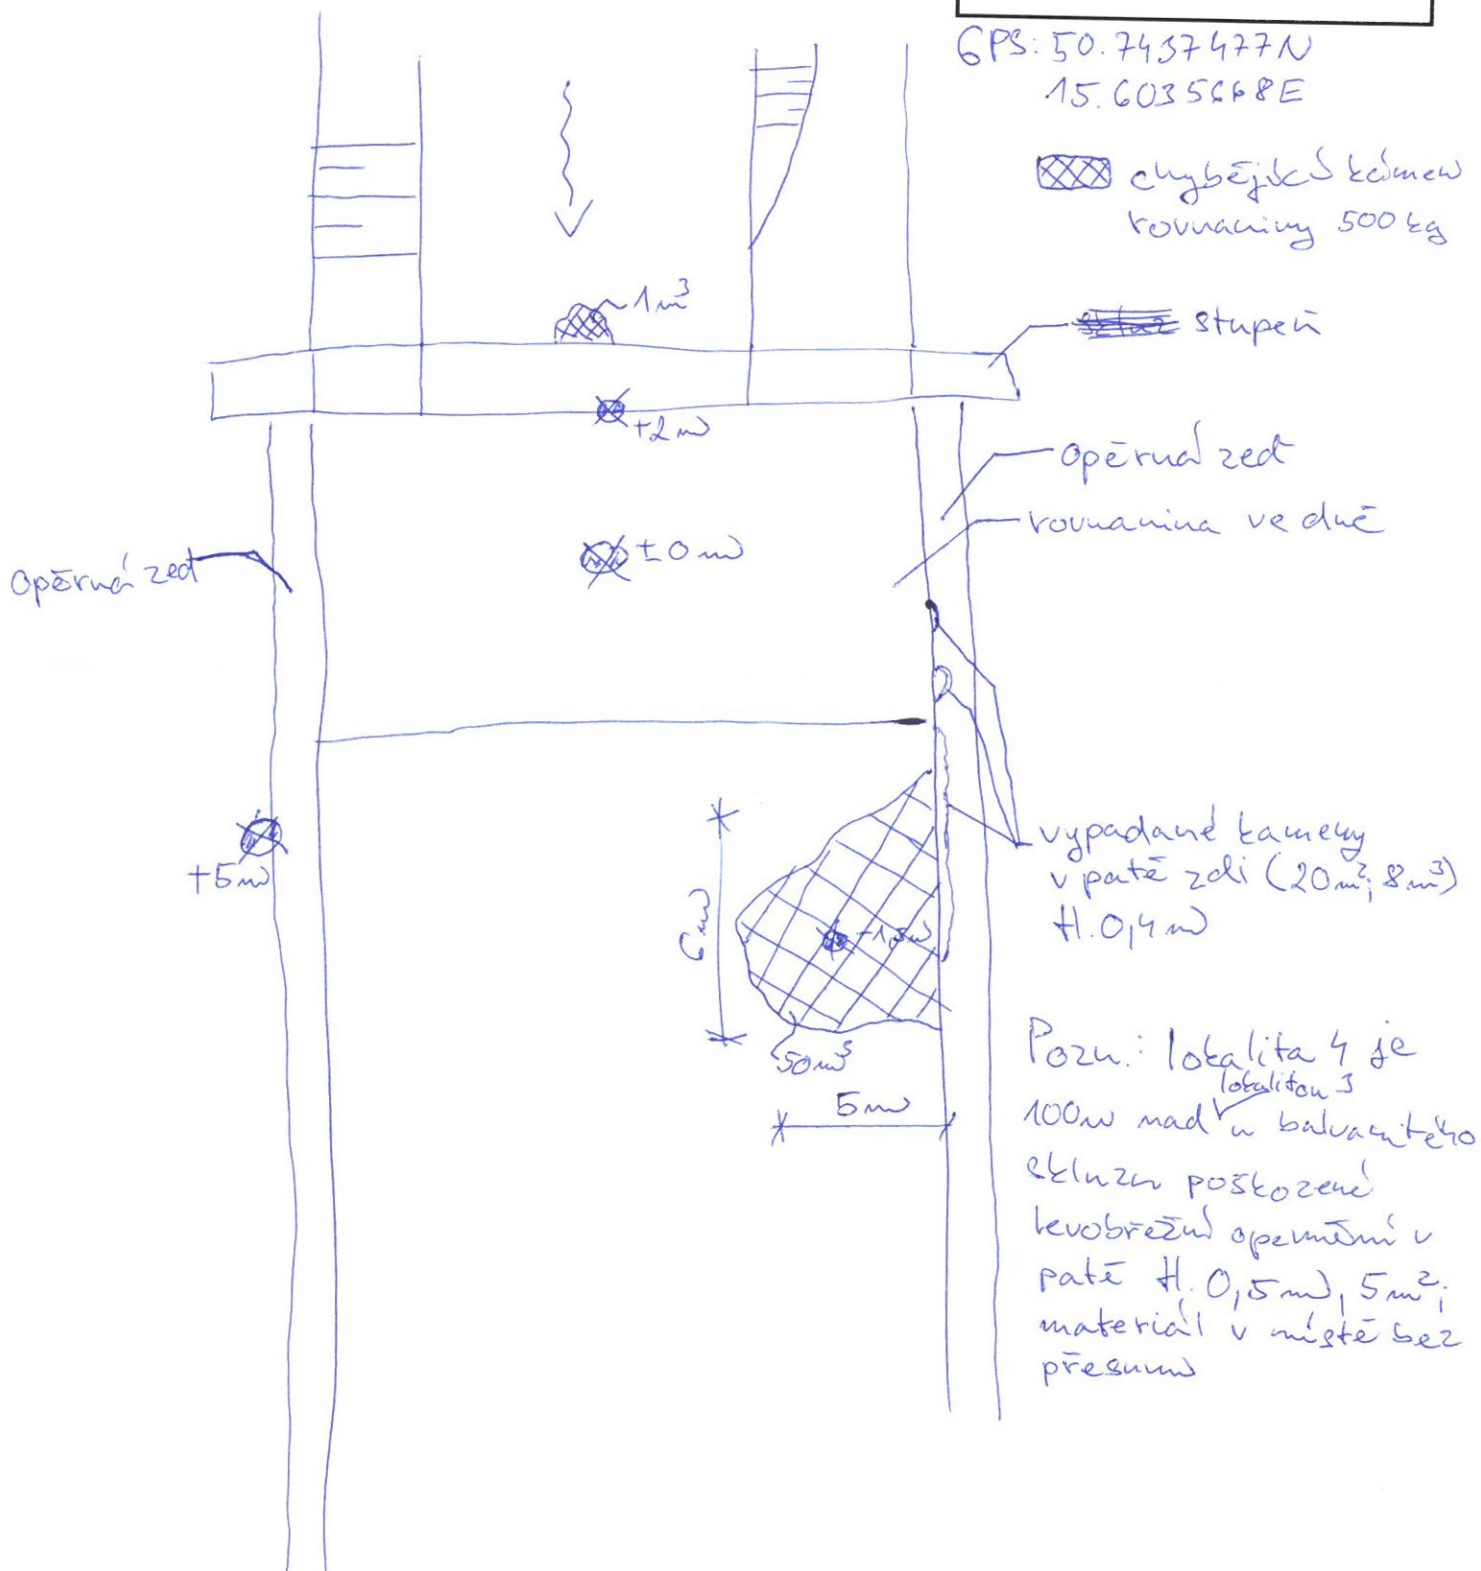 GPS: 50.7437477N
15.6035668E
chybějící kámen
rovnaniny 500 kg
~1m³
stupeň
+2m
opěrná zeď
rovnanina ve dně
±0m
opěrná zeď
+5m
vypadané kameny
v patě zdi (20m²; 8m³)
tl. 0,4m
6m
50m³
5m
Pozn.: lokalita 4 je
lokalitou 3
100m nad u balvanitého
skluzu poškozené
levobřežní opevnění v
patě tl. 0,5m, 5m²;
materiál v místě bez
přesunu